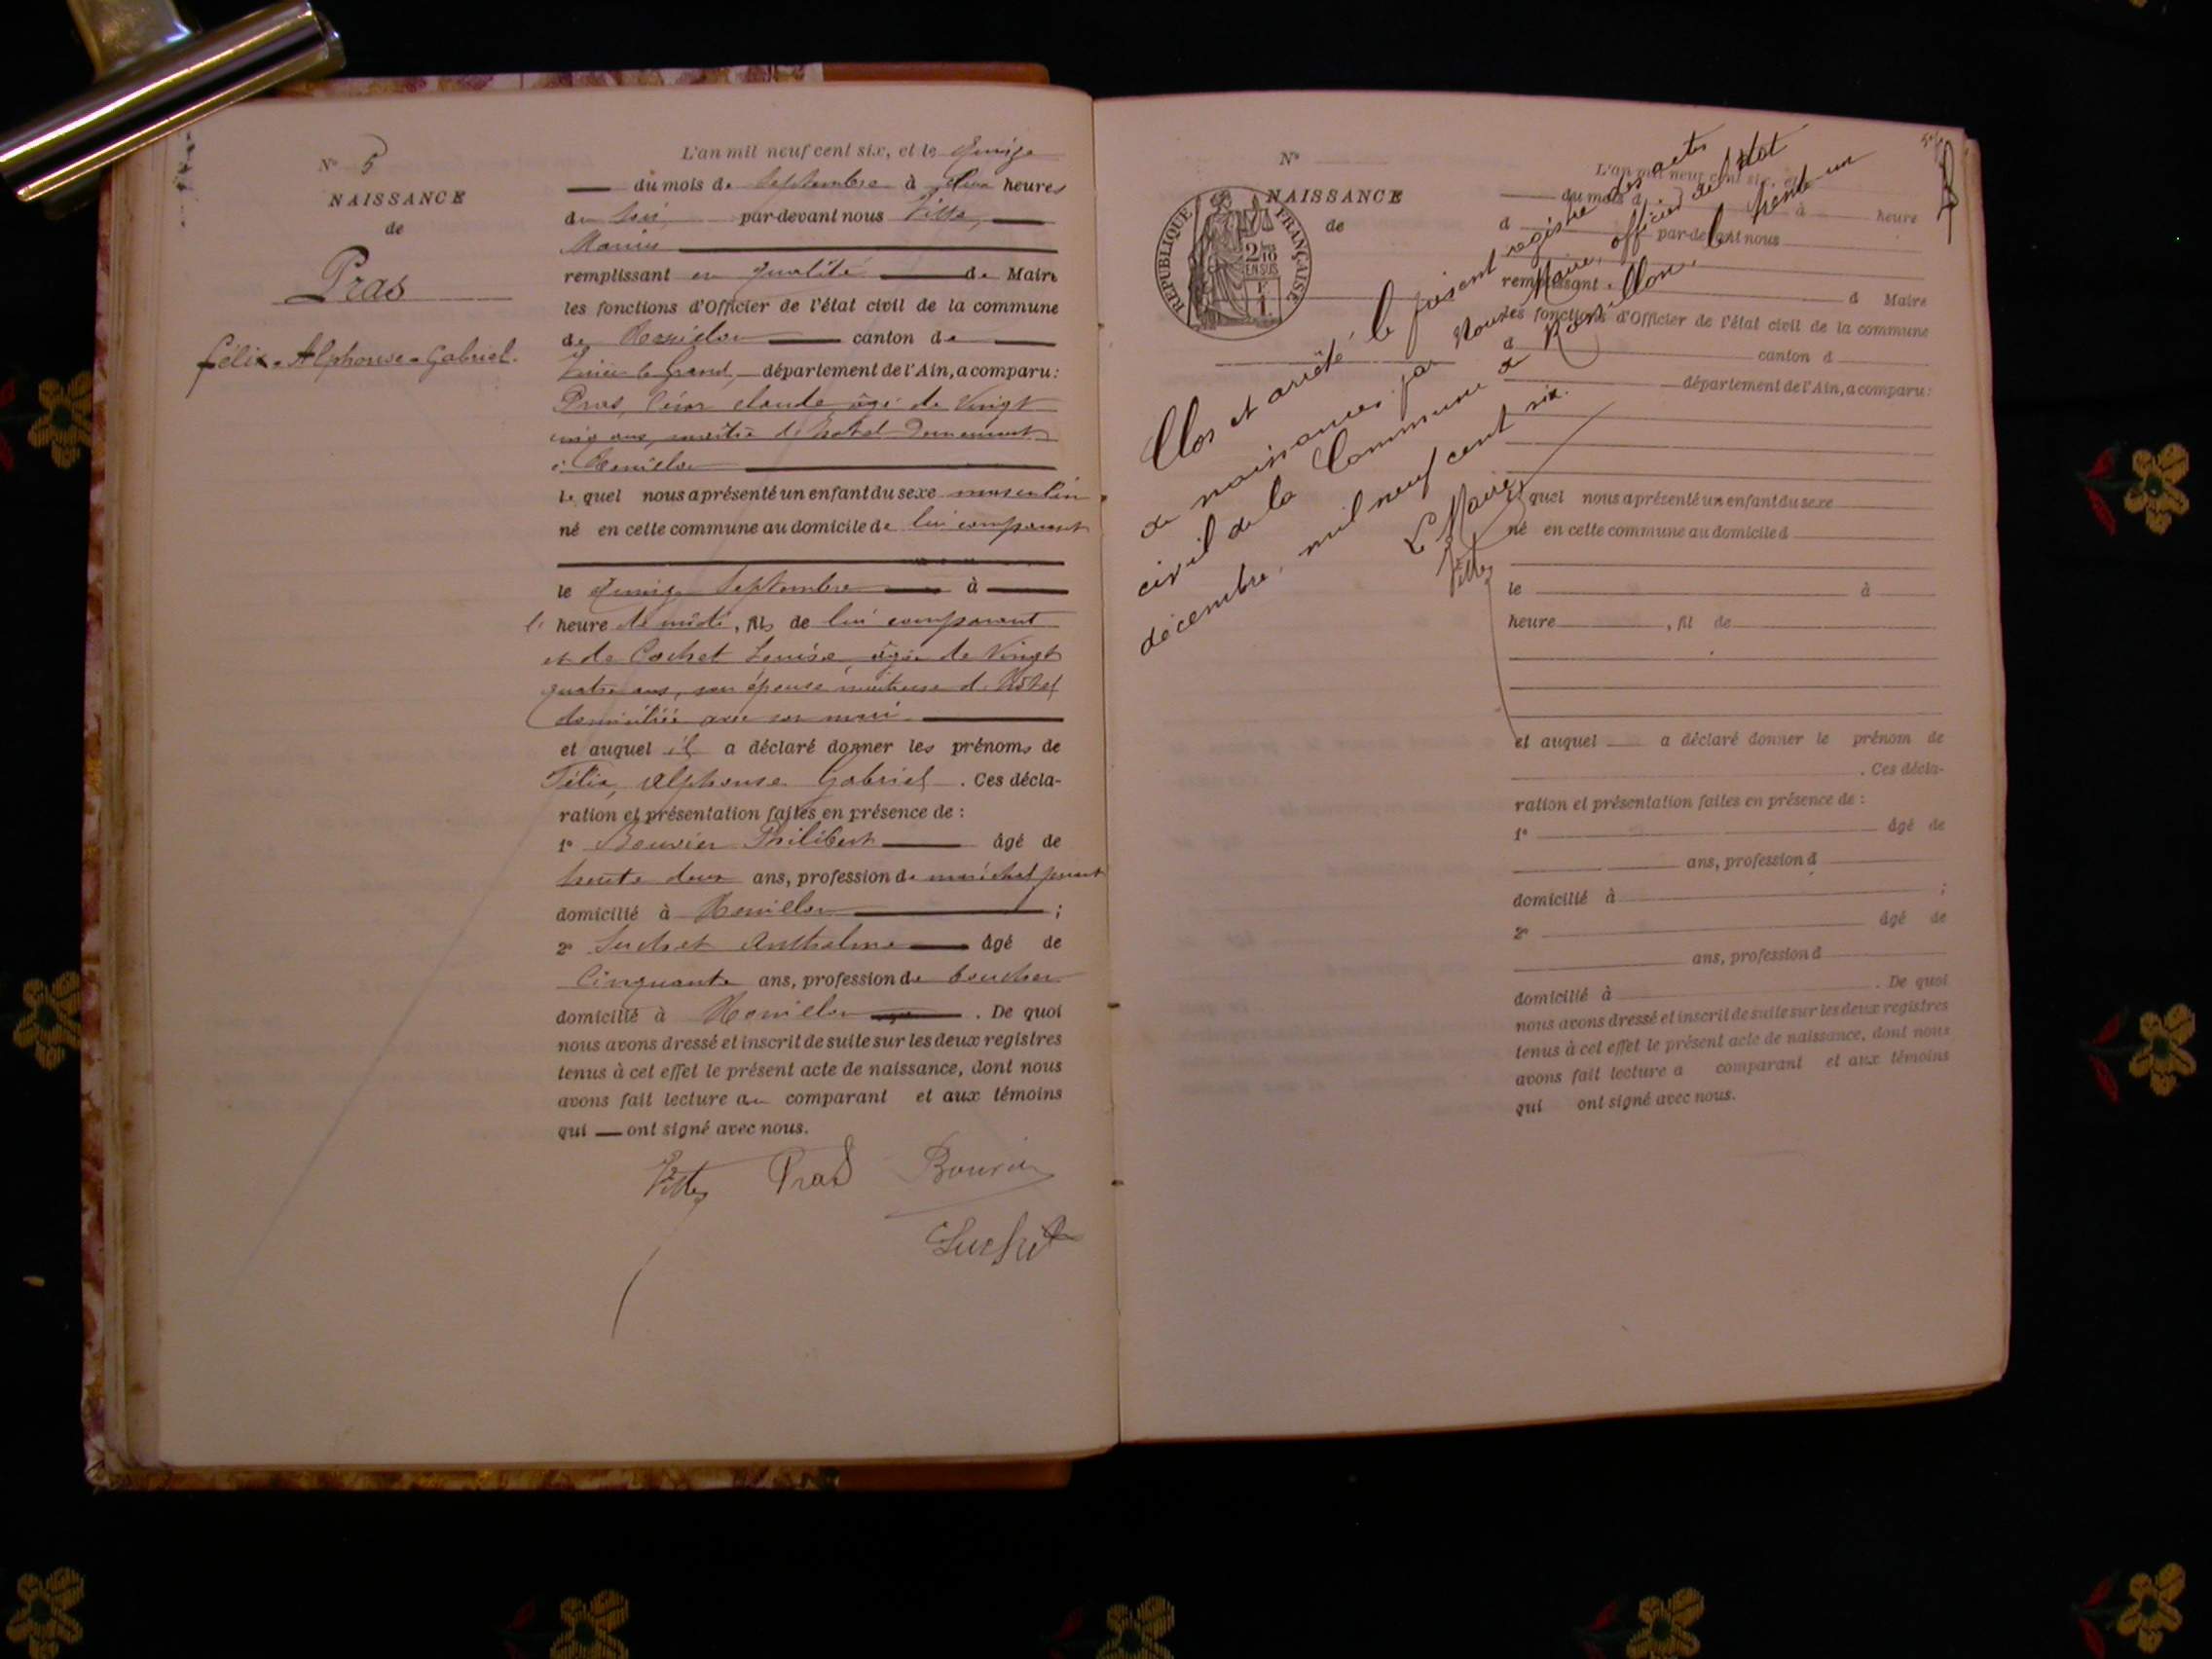 N° 5
NAISSANCE
de
Pras
félix-Alphonse-Gabriel.
L'an mil neuf cent six, et le quinze
du mois de Septembre à deux heures
du soir, par-devant nous Vitte,
Marius
remplissant en qualité de Maire
les fonctions d'Officier de l'état civil de la commune
de Rossillon canton de
Virieu le Grand, département de l'Ain, a comparu:
Pras, claude âgé de Vingt
ans, maître d'hôtel demeurant
à Rossillon
le quel nous a présenté un enfant du sexe masculin
né en cette commune au domicile de lui comparant
le quinze Septembre à
l' heure de midi, fils de lui comparant
et de Cochet Louise, âgée de Vingt
quatre ans, son épouse maîtresse d'hôtel
domiciliée avec son mari
et auquel il a déclaré donner les prénoms de
Félix, Alphonse Gabriel. Ces décla-
ration et présentation faites en présence de :
1° Bouvier Philibert âgé de
trente deux ans, profession de maréchal ferrant
domicilié à Rossillon ;
2° Suchet Anthelme âgé de
Cinquante ans, profession de boucher
domicilié à Rossillon. De quoi
nous avons dressé et inscrit de suite sur les deux registres
tenus à cet effet le présent acte de naissance, dont nous
avons fait lecture au comparant et aux témoins
qui ont signé avec nous.
Vitte Pras Bouvier
Suchet
N°
NAISSANCE
de
RÉPUBLIQUE FRANÇAISE
2/10
EN SUS
1
Clos et arrêté le présent registre des actes
de naissances par Nous Maire, officier de l'état
civil de la Commune de Rossillon, le trente un
décembre, mil neuf cent six.
Le Maire,
Vitte
L'an mil neuf cent six, et
du mois d à heure
d par-devant nous
remplissant d Maire
les fonctions d'Officier de l'état civil de la commune
d canton d
département de l'Ain, a comparu:
quel nous a présenté un enfant du sexe
né en cette commune au domicile d
le à
heure , fil de
et auquel a déclaré donner le prénom de
. Ces décla-
ration et présentation faites en présence de :
1° âgé de
ans, profession d
domicilié à ;
2° âgé de
ans, profession d
domicilié à . De quoi
nous avons dressé et inscrit de suite sur les deux registres
tenus à cet effet le présent acte de naissance, dont nous
avons fait lecture a comparant et aux témoins
qui ont signé avec nous.